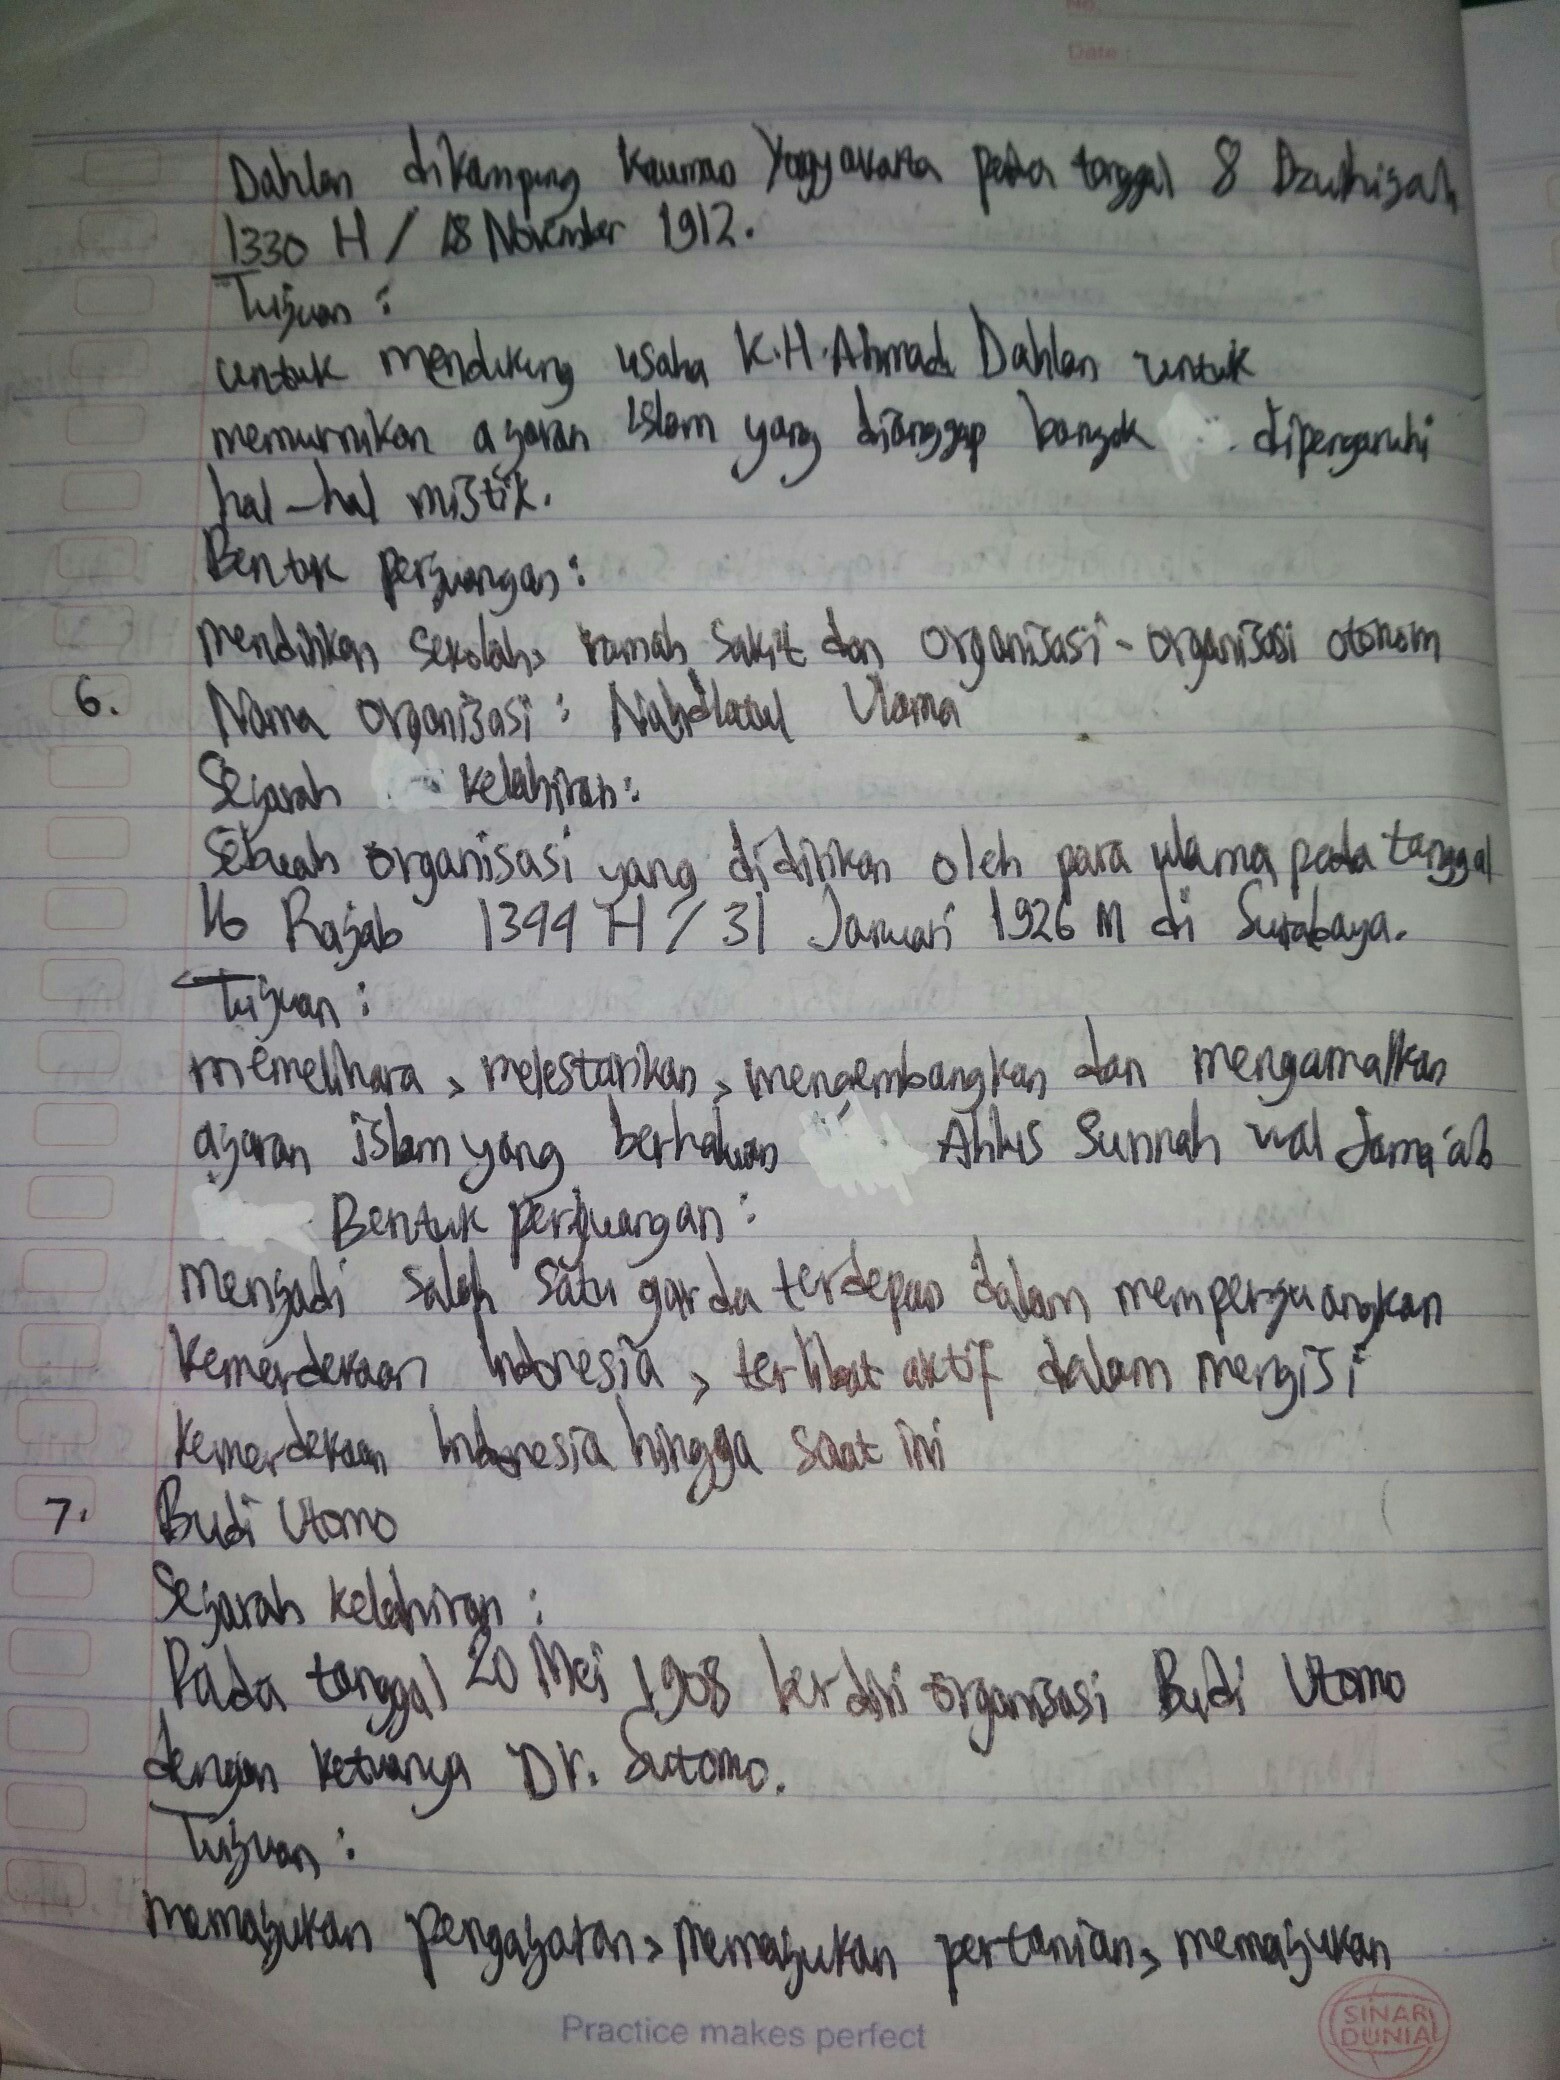 No.
Date :
Dahlan dikampung Kauman Yogyakarta pada tanggal 8 Dzulhijah
1330 H / 18 November 1912.
Tujuan :
untuk mendukung usaha K.H. Ahmad Dahlan untuk
memurnikan ajaran islam yang dianggap banyak dipengaruhi
hal-hal mistik.
Bentuk perjuangan :
mendirikan sekolah, rumah sakit dan organisasi-organisasi otonom
6. Nama organisasi : Nahdlatul Ulama
Sejarah kelahiran :
Sebuah organisasi yang didirikan oleh para ulama pada tanggal
16 Rajab 1344 H / 31 Januari 1926 M di Surabaya.
Tujuan :
memelihara, melestarikan, mengembangkan dan mengamalkan
ajaran islam yang berhaluan Ahlus Sunnah wal Jama'ah
Bentuk perjuangan :
menjadi salah satu garda terdepan dalam memperjuangkan
kemerdekaan Indonesia, terlibat aktif dalam mengisi
kemerdekaan Indonesia hingga saat ini
7. Budi Utomo
Sejarah kelahiran :
Pada tanggal 20 Mei 1908 berdiri organisasi Budi Utomo
dengan ketuanya Dr. Sutomo.
Tujuan :
memajukan pengajaran, memajukan pertanian, memajukan
Practice makes perfect
SINAR
DUNIA